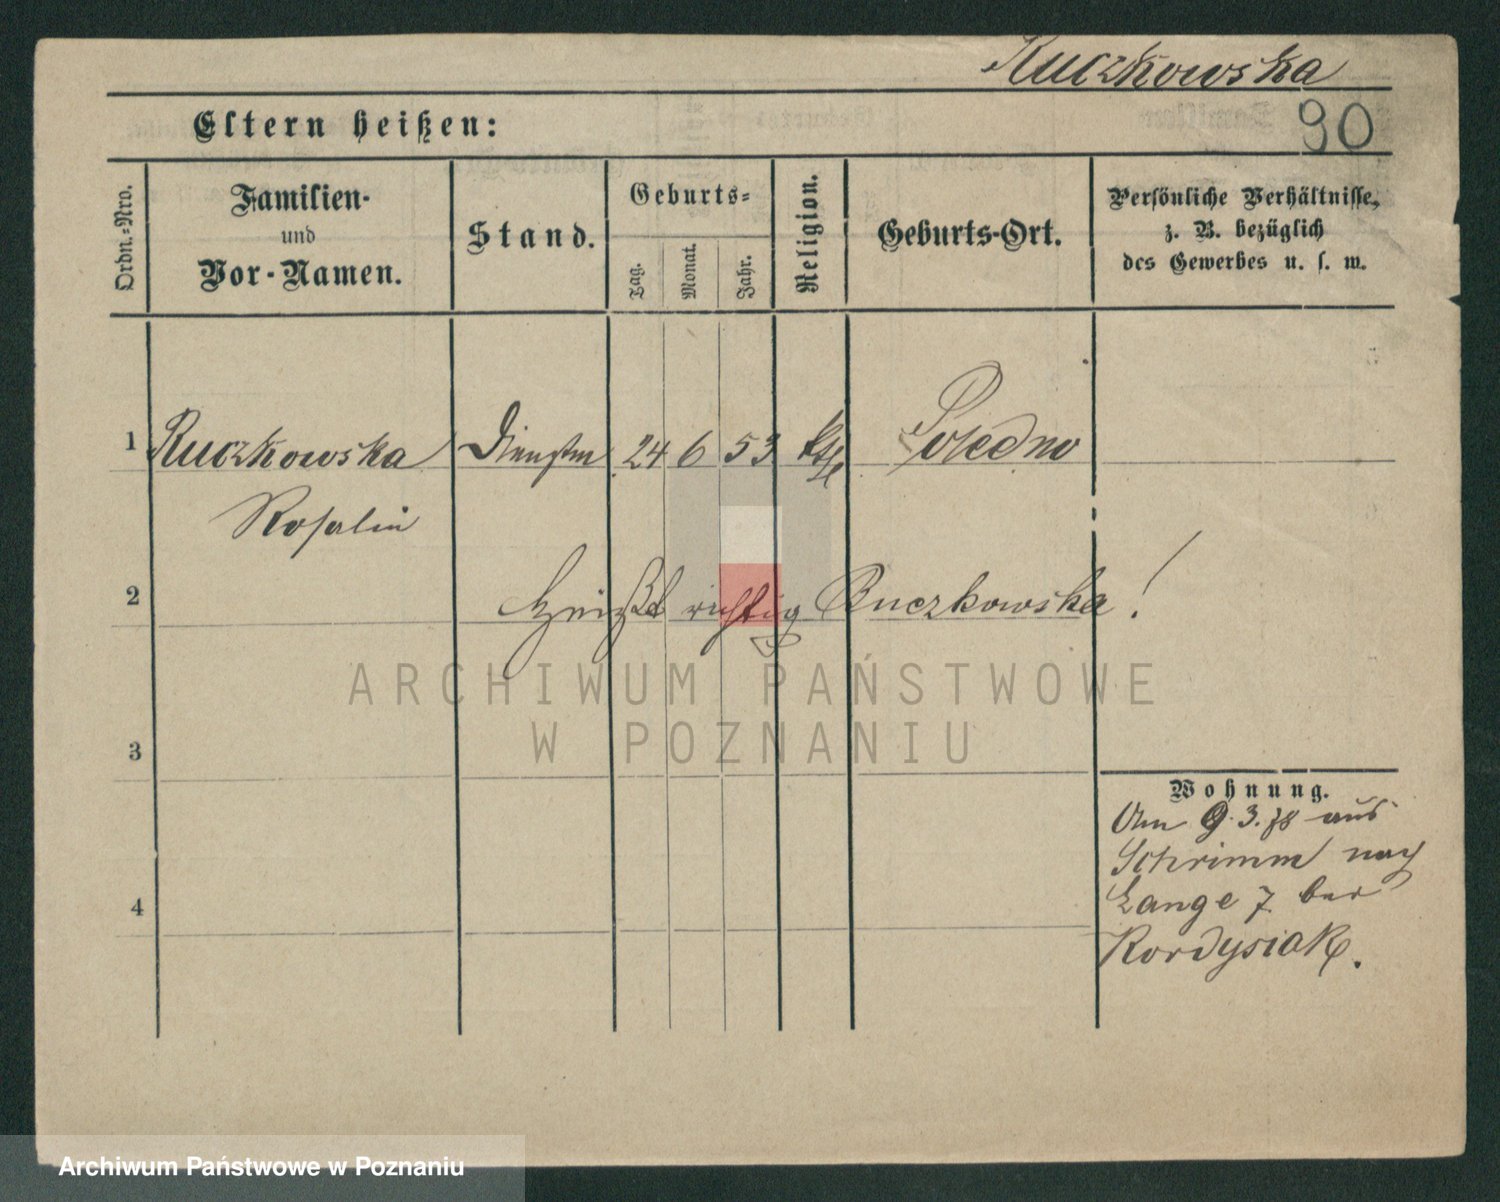 Ruczkowska
Eltern heißen:
90
Ordn.-Nro.
Familien-
und
Vor-Namen.
Stand.
Geburts-
Tag.
Monat.
Jahr.
Religion.
Geburts-Ort.
Persönliche Verhältnisse,
z. B. bezüglich
des Gewerbes u. s. w.
1 Ruczkowska 24 6 53 kth
Rosalie
2 heißt richtig Buczkowska!
3
4
Wohnung.
Am 9.3.78 aus
Schrimm nach
Lange 7 bei
Kordysiak.
ARCHIWUM PAŃSTWOWE
W POZNANIU
Archiwum Państwowe w Poznaniu